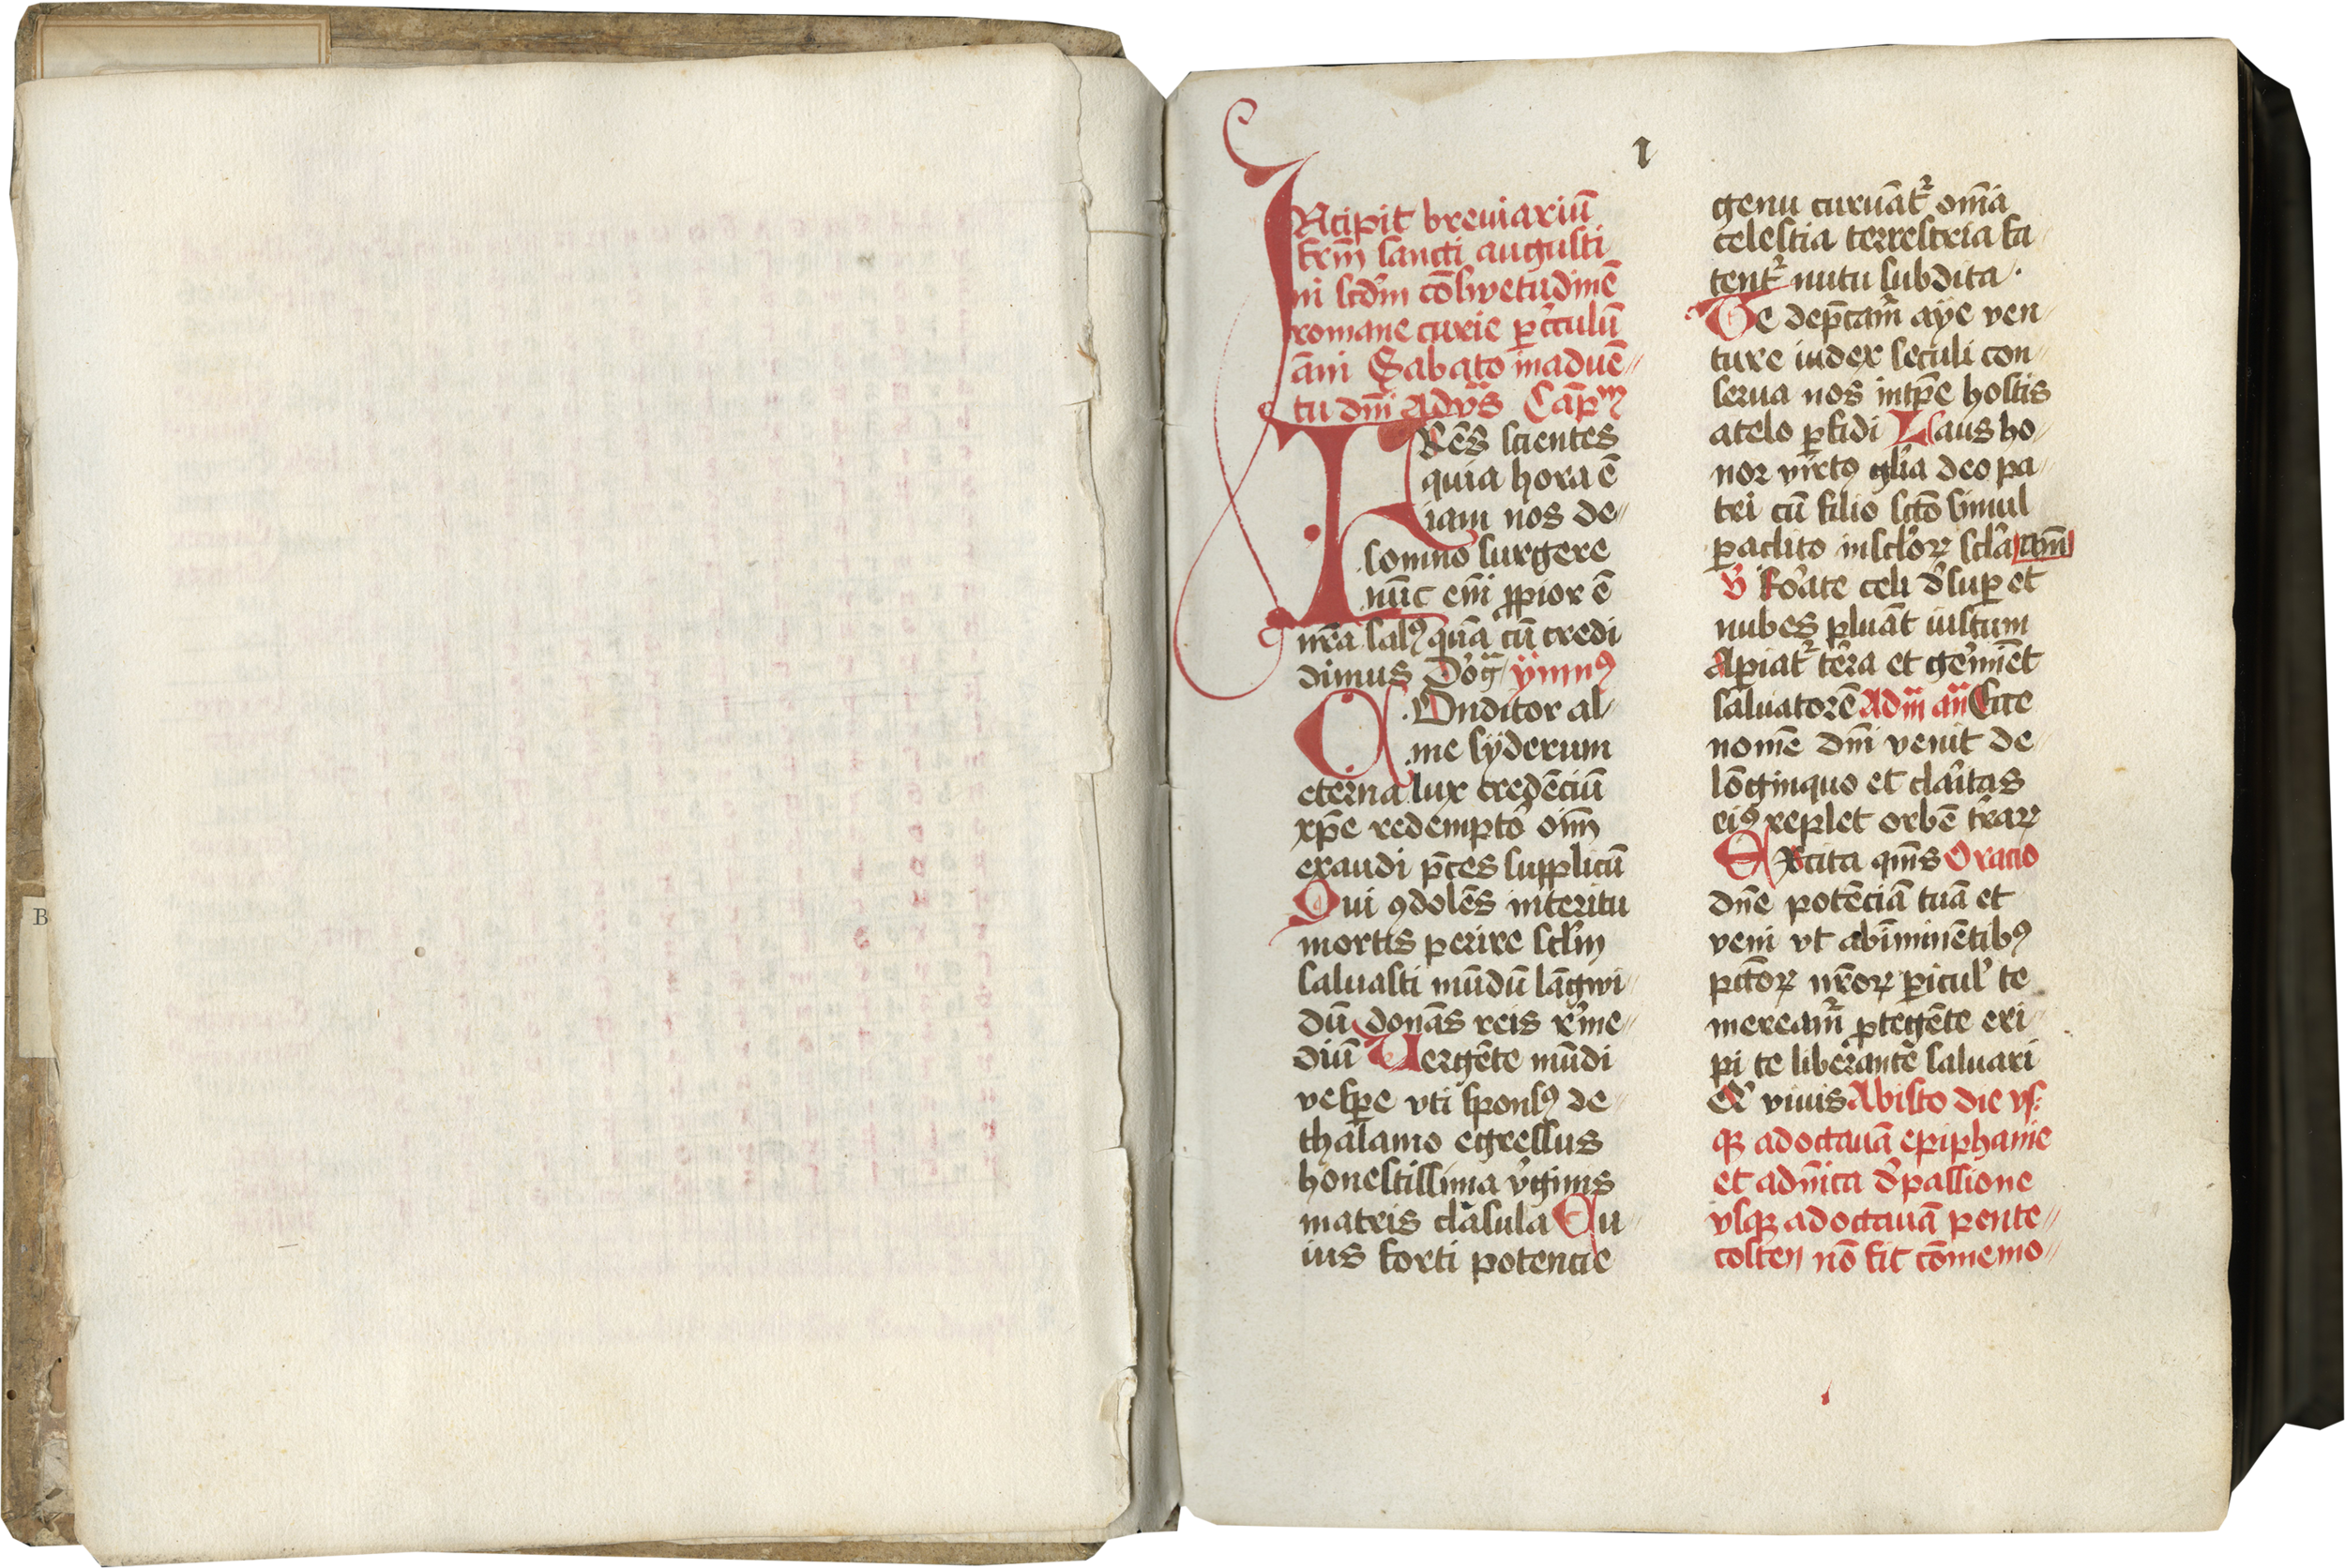 B
1
INcipit breuiariū
frm̄ sancti augusti
ni scdm̄ cōswetudinē
romane curie ꝑ cr̄culū
ān̄i Sabato in aduē
tu dn̄i Ad vs̄ Cap̄m
FRēs scientes
quia hora ē
iam nos de
somno surgere
nūc em̄ ꝓpior ē
nr̄a salꝰ quā cū credi
dimus Deo gr̄a ymnꝰ
COnditor al
me syderum
eterna lux credēciū
xp̄e redemptor̉ oīm
exaudi p̄ces supplicū
Qui ꝯdolēs interitu
mortis perire sclm̄
saluasti mūdū lāgwi
dū donās reis reme
diū Uergēte mūdi
vesꝑe vti sponsꝰ de
thalamo egressus
honestissima v̉ginis
matris clāsula Cu
ius forti potencie
genu curuāt᷑ om̄ia
celestia terrestria fa
tent᷑ nutu subdita.
Te dep̄cam̉ aÿe ven
ture iudex seculi con
serua nos intꝑe hostis
a telo ꝑfidi Laus ho
nor virtꝰ gl̄ia deo pa
tri cū filio sctō simul
paclito in sclōꝝ scl̄a am̄
V̉ Rỏate celi d̉suꝑ et
nubes pluāt iustum
Aꝑiat᷑ tẻra et gẻminēt
saluatorē Ad m̄ an̄ Ecce
nomē dn̄i venit de
lōginquo et clảitas
eiꝰ replet orbē tr̄aꝝ
EXcita qm̄s Oracio
dn̄e potēciā tuā et
veni vt ab īminētibꝰ
pctōꝝ nr̄oꝝ ꝑicul̉ te
meream̉ ꝓtegēte eri
pi te liberantē saluari
Q̉ viuis Ab isto die vs
qꝫ ad octauā epiphanie
et a dn̄ica d̉ passione
vsqꝫ ad octauā pente
costen nō fit cōmemo